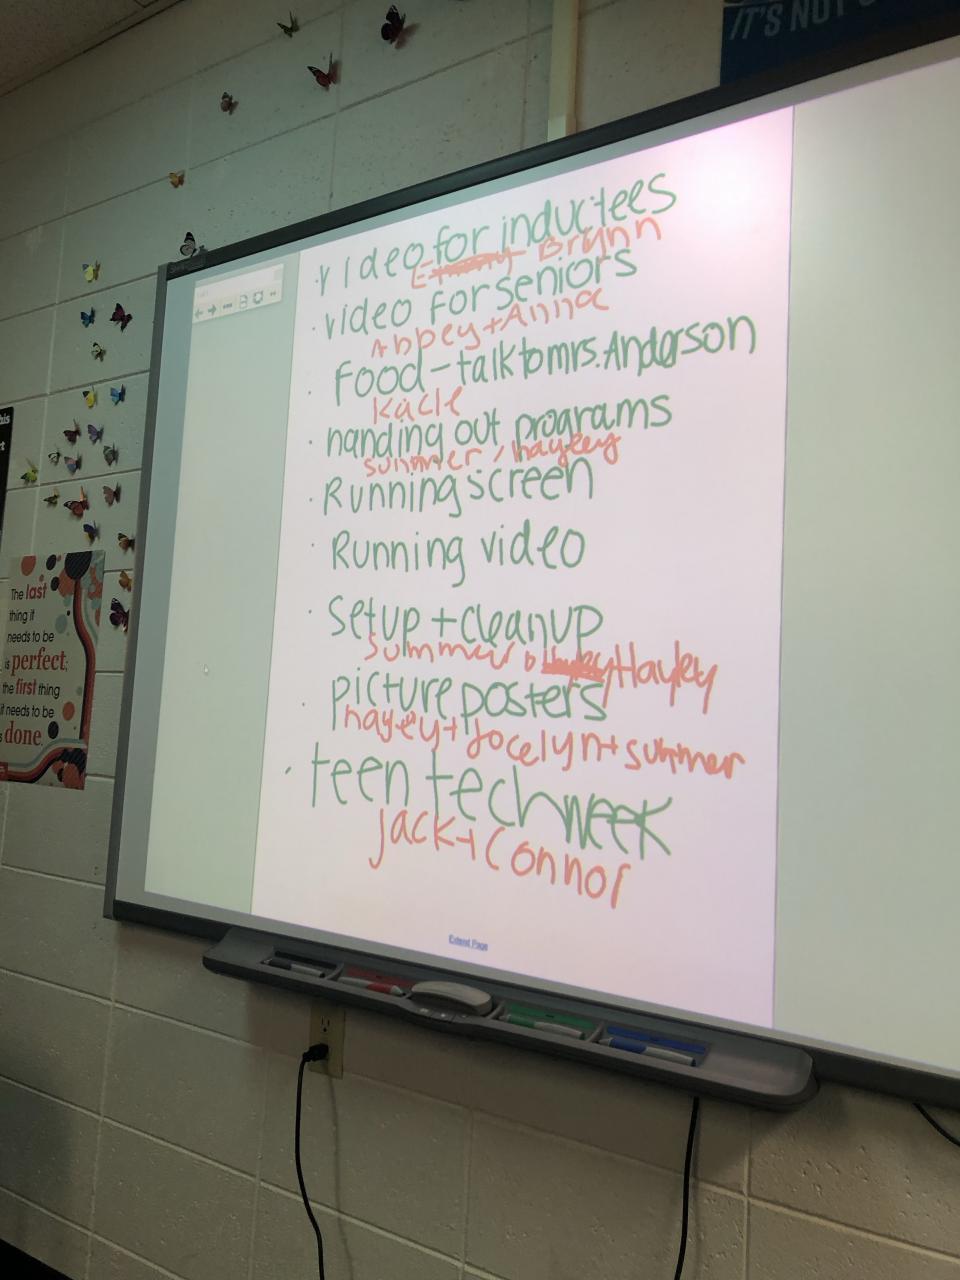 IT'S NOT
· video for inductees
Emmy Brynn
· video for seniors
Abbey + Anna
· Food - talk to mrs. Anderson
Kacie
· handing out programs
summer / hayley
· Running screen
· Running video
· setup + cleanup
Summer Hayley Hayley
· picture posters
hayley + Jocelyn + summer
· teen tech week
Jack + Connor
Extend Page
The last
thing it
needs to be
is perfect;
the first thing
it needs to be
is done.